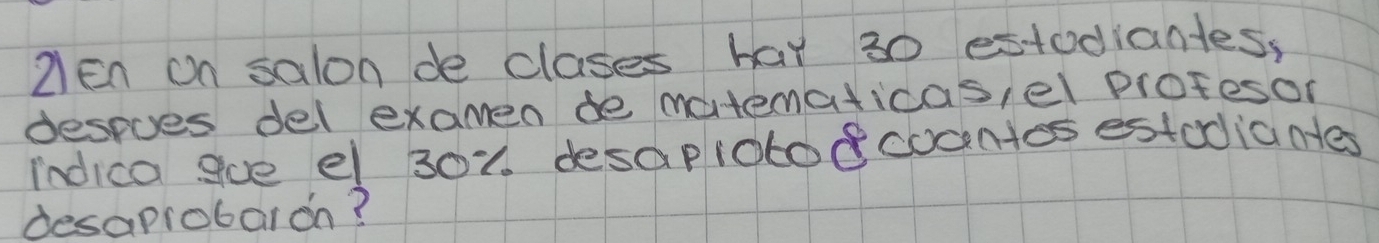 2) En un salon de clases hay 30 estudiantes,
despues del examen de matematicas, el profesor
indica que el 30% desaprobo ¿cuantos estudiantes
desaprobarón?